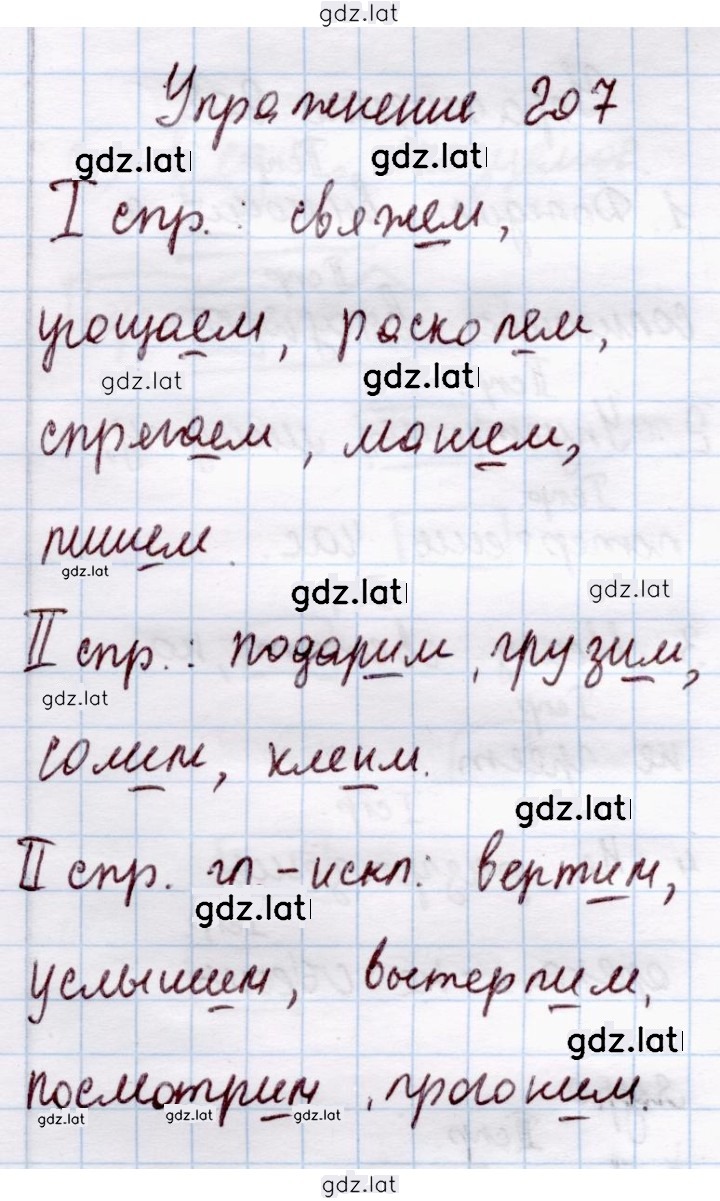 gdz.lat
Упражнение 207
gdz.lat gdz.lat
I спр.: свяжем,
угощаем, расколем,
gdz.lat gdz.lat
спрягаем, машем,
пишем.
gdz.lat
gdz.lat gdz.lat
II спр.: подарим, грузим,
gdz.lat
солим, клеим.
gdz.lat
II спр. гл.-искл.: вертим,
gdz.lat
услышим, вытерпим,
gdz.lat
посмотрим, прогоним.
gdz.lat gdz.lat gdz.lat
gdz.lat